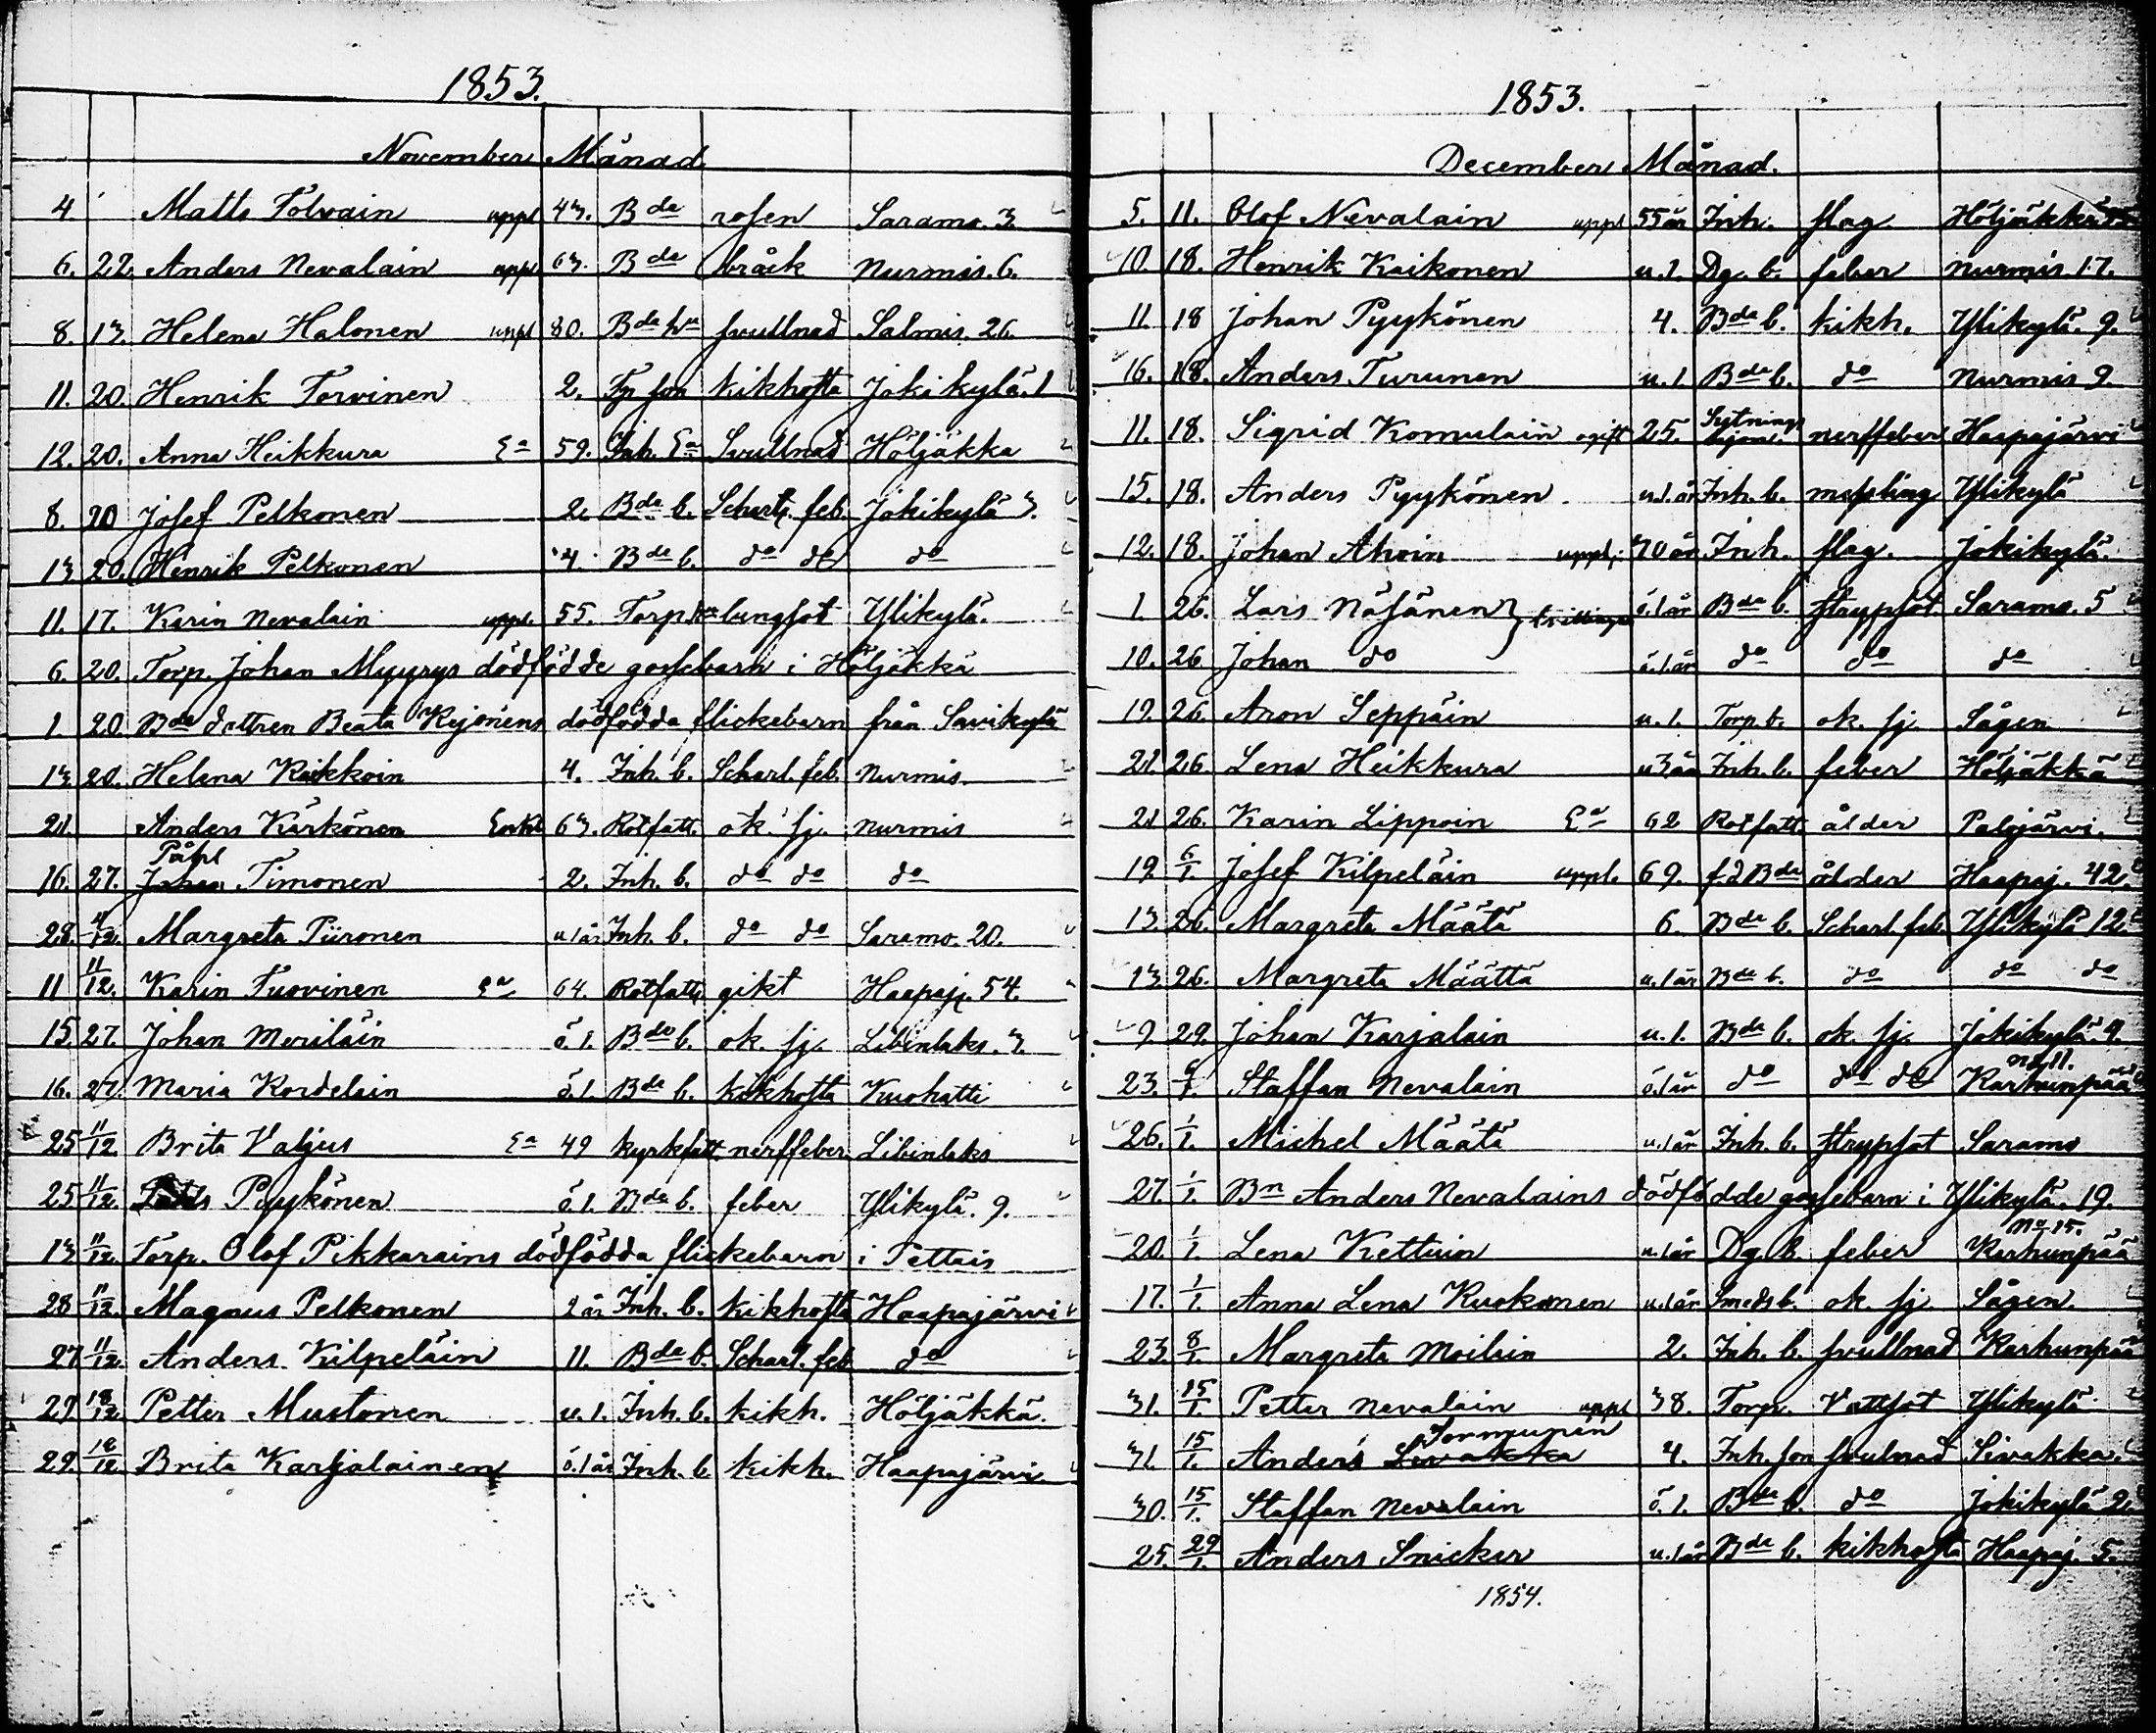 1853.
November Månad
4. Matts Tolvain uppl 43. Bde rosen Saramo. 3.
6. 22. Anders Nevalain uppl 63. Bde bråck Nurmis. 6.
8. 13. Helena Halonen uppl 80. Bde hu svullnad Salmis. 26.
11. 20. Henrik Torvinen 2. son kikhosta Jokikylä. 1
12. 20. Anna Heikkura Ea 59. Inh. Ea Svullnad Höljäkka
8. 20 Josef Pelkonen 2. Bde b. Scharl. feb. Jokikylä 3.
13 20. Henrik Pelkonen 4. Bde b. do do do
11. 17. Karin Nevalain uppl. 55. Torp. lungsot Ylikylä.
6 20. Torp. Johan Myyrys dödfödde gossebarn i Höljäkkä
1. 20 Bde dottren Beata Kejonens dödfödda flickebarn från Savikylä
13 20. Helena Kaikkoin 4. Inh. b. Scharl. feb. Nurmis.
21. Anders Kärkönen Enkl 63. Rotfatt. ok. sj. Nurmis
16. 27. Påhl Timonen 2. Inh. b. do do do
28. 4/12. Margreta Piironen u 1 år Inh. b. do do Saramo. 20.
11 11/12. Karin Tuovinen Ea 64. Rotfatt. gikt Haapaj. 54.
15. 27. Johan Meriläin ö. 1. Bde b. ok. sj. Libinlaks. 3.
16. 27. Maria Kordelain ö. 1. Bde b. kikhosta Kuohatti
25 11/12. Brita Valjus Ea 49 kyrkfatt. nerffeber Libinlaks
25 11/12. Pyykönen ö. 1. Bde b. feber Ylikylä. 9.
13 11/12. Torp. Olof Pikkarains dödfödda flickebarn i Pettais
28 11/12. Magnus Pelkonen 2 år Inh. b. kikhosta Haapajärvi
27 11/12. Anders Kilpeläin 11. Bde b. Scharl. feb do
29 18/12 Petter Mustonen u. 1. Inh. b. kikh. Höljäkkä.
29. 18/12 Brita Karjalainen ö. 1 år Inh. b kikh. Haapajärvi
1853.
December Månad.
5. 11. Olof Nevalain uppl 55 år Inh. slag Höljäkkä
10. 18. Henrik Kaikonen u. 1. Dg. b. feber Nurmis 17.
11. 18 Johan Pyykönen 4. Bde b. kikh. Ylikylä. 9.
16. 18. Anders Turunen u. 1. Bde b. do Nurmis 9.
11. 18. Sigrid Komulain ogift 25. Sytnings hjon nerffeber Haapajärvi
15. 18. Anders Pyykönen u. 1. år Inh. b. messling Ylikylä
12. 18. Johan Ahoin uppl. 70 år Inh. slag. Jokikylä.
1. 26. Lars Näsänen ö. 1 år Bde b. strypsot Saramo. 5
10. 26 Johan do ö. 1. år do do do
19. 26. Aron Seppäin u. 1. Torp b. ok. sj. Sågen
21. 26. Lena Heikkura u 3 år Inh. b. feber Höljäkkä
21 26. Karin Lippoin Ea 62 Rotfatt ålder Palojärvi.
19 6/1. Josef Kilpeläin uppl. 69. f.d Bde ålder Haapaj. 42.
13. 26. Margreta Määtä 6. Bde b. Scharl. feb. Ylikylä 12.
13. 26. Margreta Määttä u. 1 år Bde b. do do do
9 29. Johan Karjalain u. 1. Bde b. ok. sj. Jokikylä. 9.
23. 6/1. Staffan Nevalain ö. 1 år do do do Karhunpää No 11.
26. 1/1. Michel Määtä u. 1 år Inh. b. strypsot Saramo
27. 1/1. Bn Anders Nevalains dödfödde gossebarn i Ylikylä. 19.
20. 1/1. Lena Kettuin u. 1 år Dg. b. feber Karhunpää No 15.
17. 1/1. Anna Lena Kuokonen u. 1 år Smeds b. ok. sj. Sågen.
23. 8/1. Margreta Moilain 2. Inh. b. svullnad Karhunpää
31. 15/1. Petter Nevalain uppl 38. Torp. Vattsot Ylikylä
31. 15/1. Anders Sivakka Tormunen 4. Inh. son svulnad Sivakka.
30. 15/1. Staffan Nevalain ö. 1. Bde b. do Jokikylä 2.
25. 29/1. Anders Snicker u. 1 år Bde b. kikhosta Haapaj. 5.
1854.